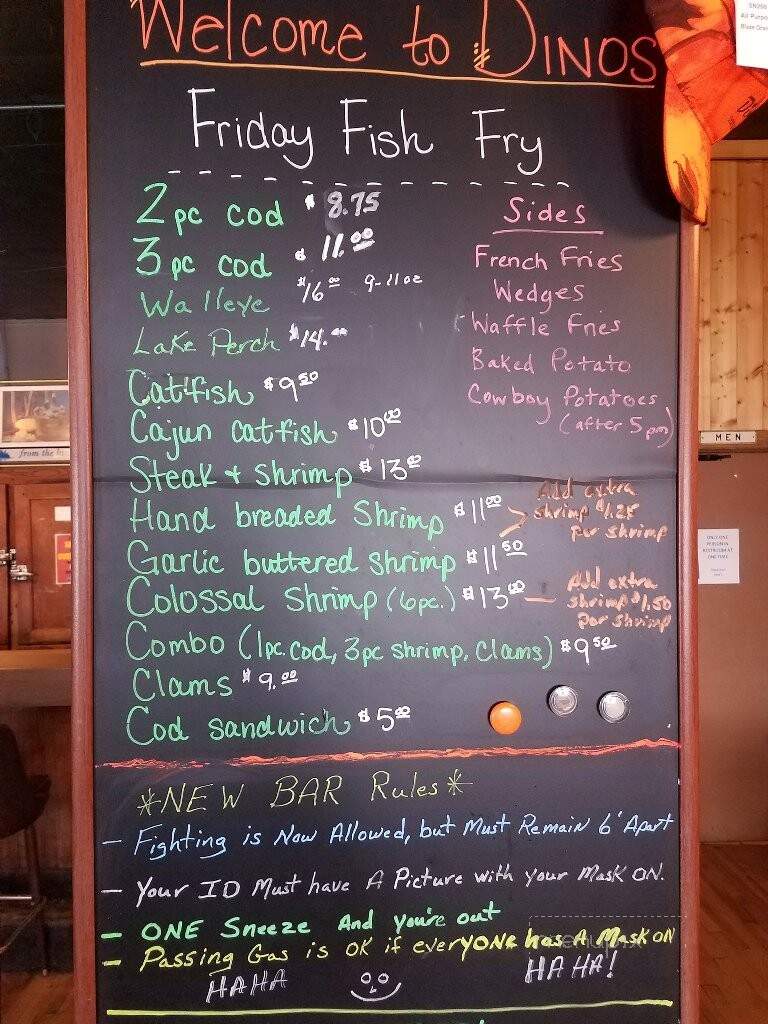 Welcome to DINOS
Friday Fish Fry
2 pc cod $8.75
3 pc cod $11.00
Walleye $16.00 9-11oz
Lake Perch $14.00
Catfish $9.50
Cajun catfish $10.00
Steak + shrimp $13.00
Hand breaded Shrimp $11.00
Garlic buttered shrimp $11.50
Colossal Shrimp (6pc.) $13.00
Combo (1pc. cod, 3pc shrimp, Clams) $9.50
Clams $9.00
Cod sandwich $5.00
Sides
French Fries
Wedges
Waffle Fries
Baked Potato
Cowboy Potatoes
(after 5pm)
Add extra
shrimp $1.25
per shrimp
Add extra
shrimp $1.50
per shrimp
*NEW BAR Rules*
- Fighting is Now Allowed, but Must Remain 6' Apart
- Your ID Must have A Picture with your Mask ON.
- ONE Sneeze And you're out
- Passing Gas is OK if everyone has A Mask ON
HAHA HA HA!
MEN
ONLY ONE
PERSON IN
RESTROOM AT
ONE TIME
from the